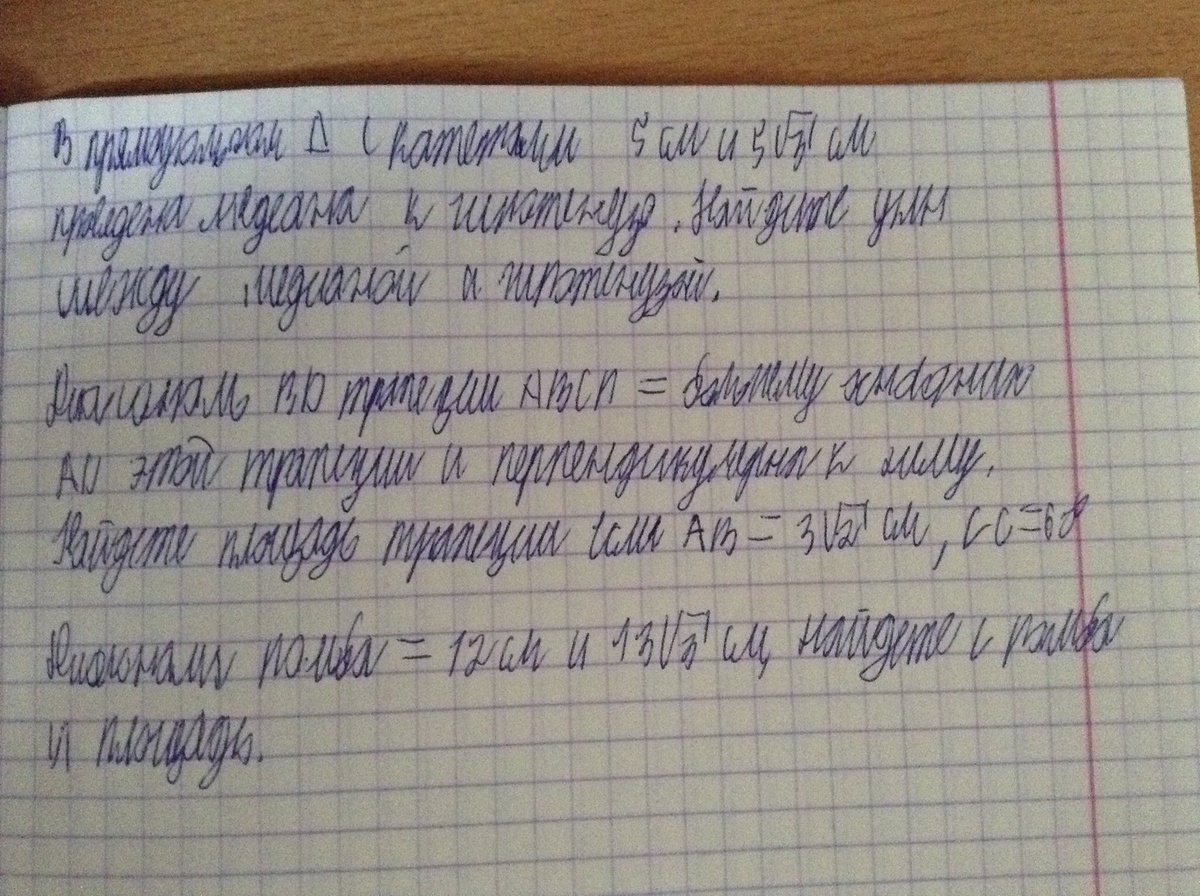 В прямоугольном Δ с катетами 5 см и 5√3 см
проведена медеана к гипотенузе. Найдите углы
между медианой и гипотенузой.
Диагональ BD трапеции ABCD = большему
AD этой трапеции и перпендикулярна к нему.
Найдете площадь трапеции если AB = 3√2 см,
Диагонали ромба = 12 см и 13√3 см, найдете с ромба
и площадь.